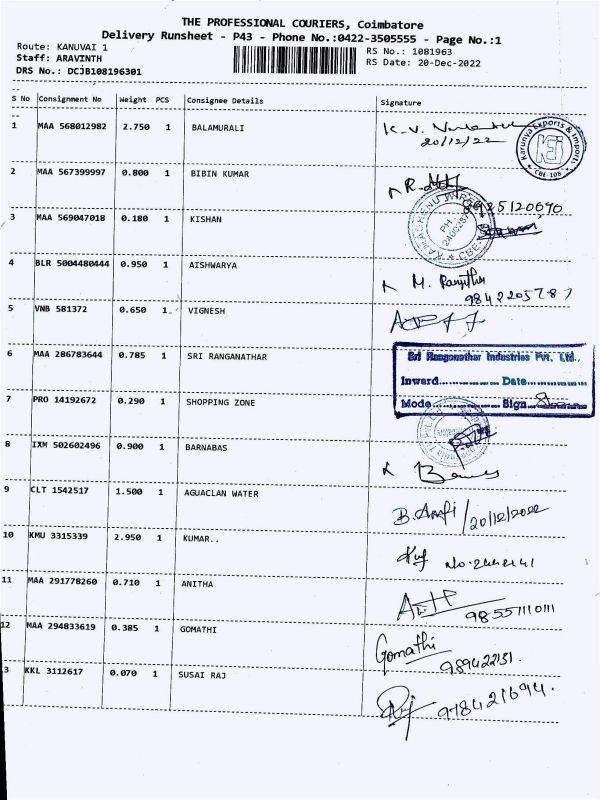 THE PROFESSIONAL COURIERS, Coimbatore
Delivery Runsheet - P43 - Phone No.:0422-3505555 - Page No.:1
Route: KANUVAI 1
RS No.: 1081963
Staff: ARAVINTH
RS Date: 20-Dec-2022
DRS No.: DCJB108196301
S No Consignment No Weight PCS Consignee Details Signature
1 MAA 568012982 2.750 1 BALAMURALI K. V.
20/12/22
Karunya Exports & Imports
KEI
* CBE-108 *
2 MAA 567399997 0.800 1 BIBIN KUMAR
8925120690
3 MAA 569047018 0.180 1 KISHAN
4 BLR 5004480444 0.950 1 AISHWARYA M.
5 VNB 581372 0.650 1 VIGNESH
6 MAA 286783644 0.785 1 SRI RANGANATHAR
Sri Ranganathar Industries Pvt. Ltd.,
Inward................ Date................
Mode................ Sign................
7 PRO 14192672 0.290 1 SHOPPING ZONE
8 IXM 502602496 0.900 1 BARNABAS
9 CLT 1542517 1.500 1 AGUACLAN WATER B. /20/12/2022
10 KMU 3315339 2.950 1 KUMAR..
11 MAA 291778260 0.710 1 ANITHA
98557110111
12 MAA 294833619 0.385 1 GOMATHI Gomathi
989422131.
3 KKL 3112617 0.070 1 SUSAI RAJ
978421694.